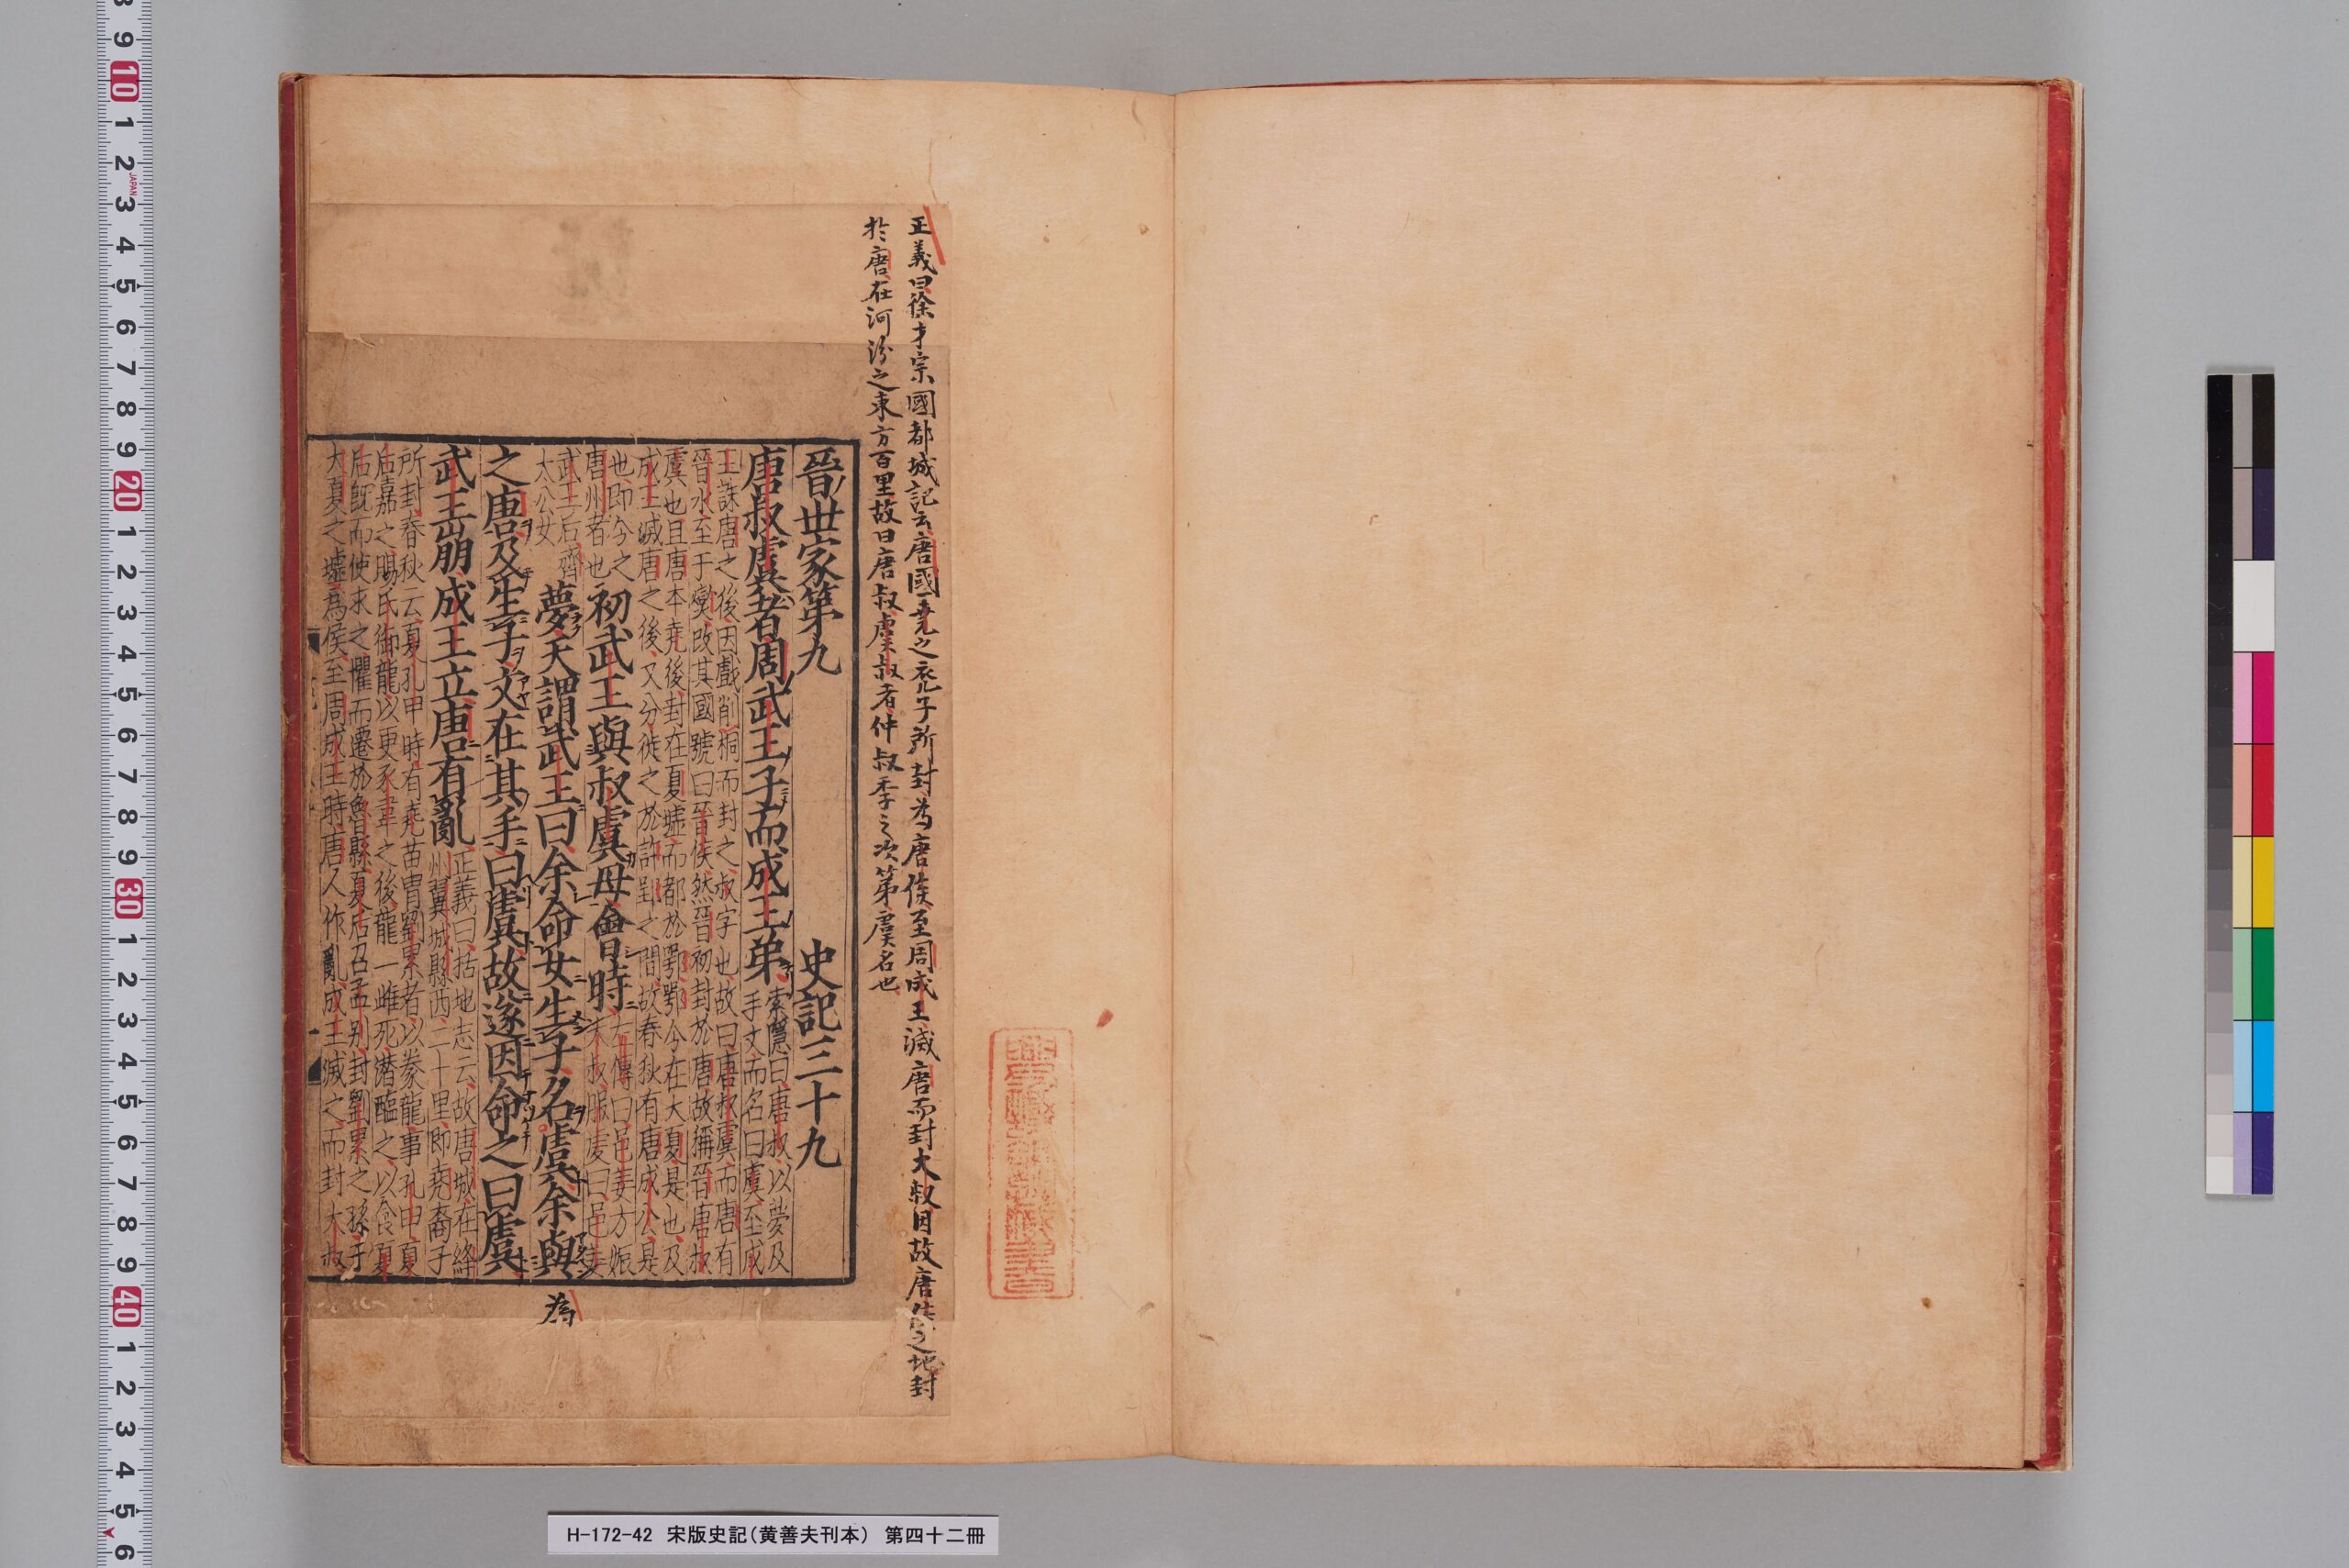 正義曰徐才宗國都城記云唐國堯之裔子所封為唐侯至周成王滅唐而封大叔因故唐侯之地封
於唐在河汾之東方百里故曰唐叔虞叔者仲叔季之次第虞名也
晉世家第九 史記三十九
唐叔虞者周武王子而成王弟
索隱曰唐叔以夢及
手文而名曰虞至成
王誅唐之後因戲削桐而封之叔字也故曰唐叔虞而唐有
晉水至于燮改其國號曰晉侯然晉初封於唐故稱晉唐叔
虞也且唐本堯後封在夏墟而都於鄂鄂今在大夏是也及
成王滅唐之後又分徙之於許郢之間故春秋有唐成公是
也即今之
唐州者也
初武王與叔虞母會時
左傳曰邑姜方娠
大叔服虔曰邑姜
武王后齊
太公女
夢天謂武王曰余命女生子名虞余與
為
之唐及生子文在其手曰虞故遂因命之曰虞
武王崩成王立唐有亂
正義曰括地志云故唐城在絳
州翼城縣西二十里即堯裔子
所封春秋云夏孔甲時有堯苗胄劉累者以豢龍事孔甲夏
后嘉之賜氏御龍以更豕韋之後龍一雌死潛醢之以食夏
后既而使求之懼而遷於魯縣夏后召孟别封劉累之孫于
大夏之墟為侯至周成王時唐人作亂成王滅之而封大叔
H-172-42 宋版史記（黄善夫刊本） 第四十二冊
10
20
30
40
JAPAN